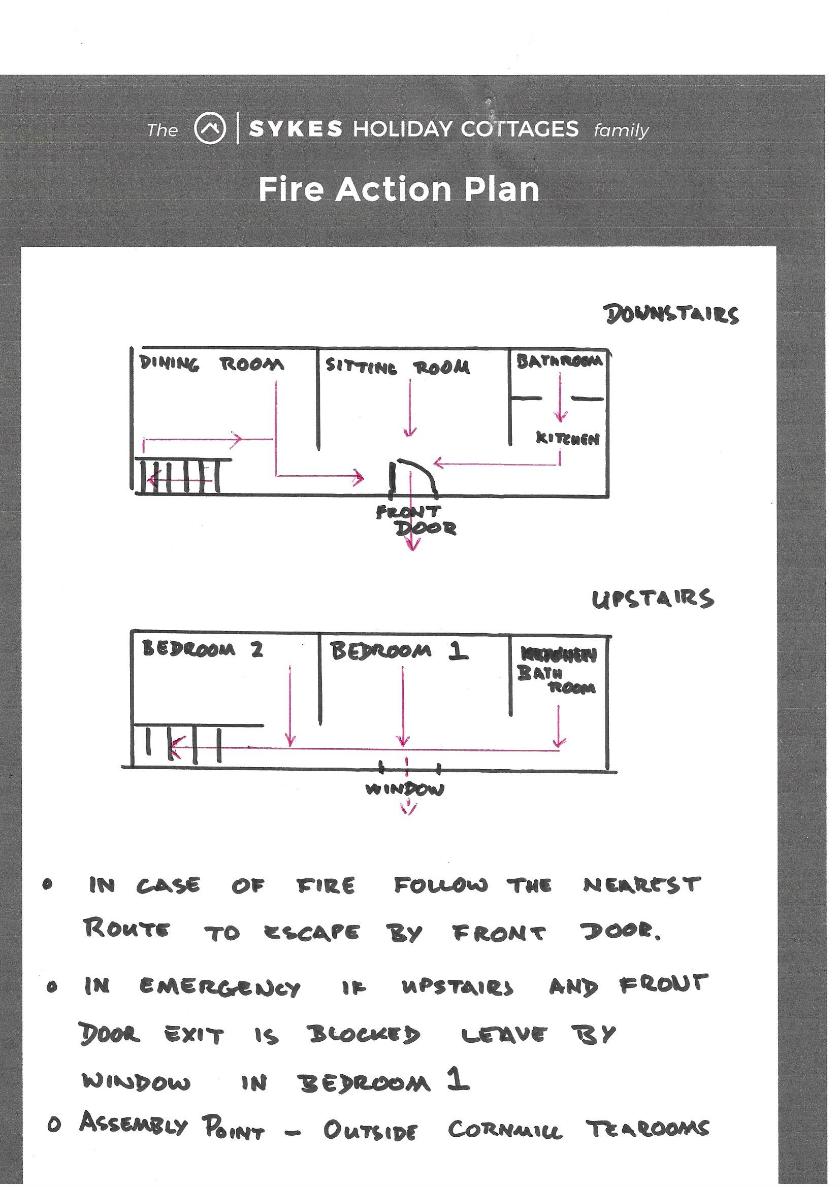 The SYKES HOLIDAY COTTAGES family
Fire Action Plan
DOWNSTAIRS
DINING ROOM
SITTING ROOM
BATHROOM
KITCHEN
FRONT
DOOR
UPSTAIRS
BEDROOM 2
BEDROOM 1
BATH
ROOM
WINDOW
• IN CASE OF FIRE FOLLOW THE NEAREST
ROUTE TO ESCAPE BY FRONT DOOR.
• IN EMERGENCY IF UPSTAIRS AND FRONT
DOOR EXIT IS BLOCKED LEAVE BY
WINDOW IN BEDROOM 1
• ASSEMBLY POINT – OUTSIDE CORNMILL TEAROOMS